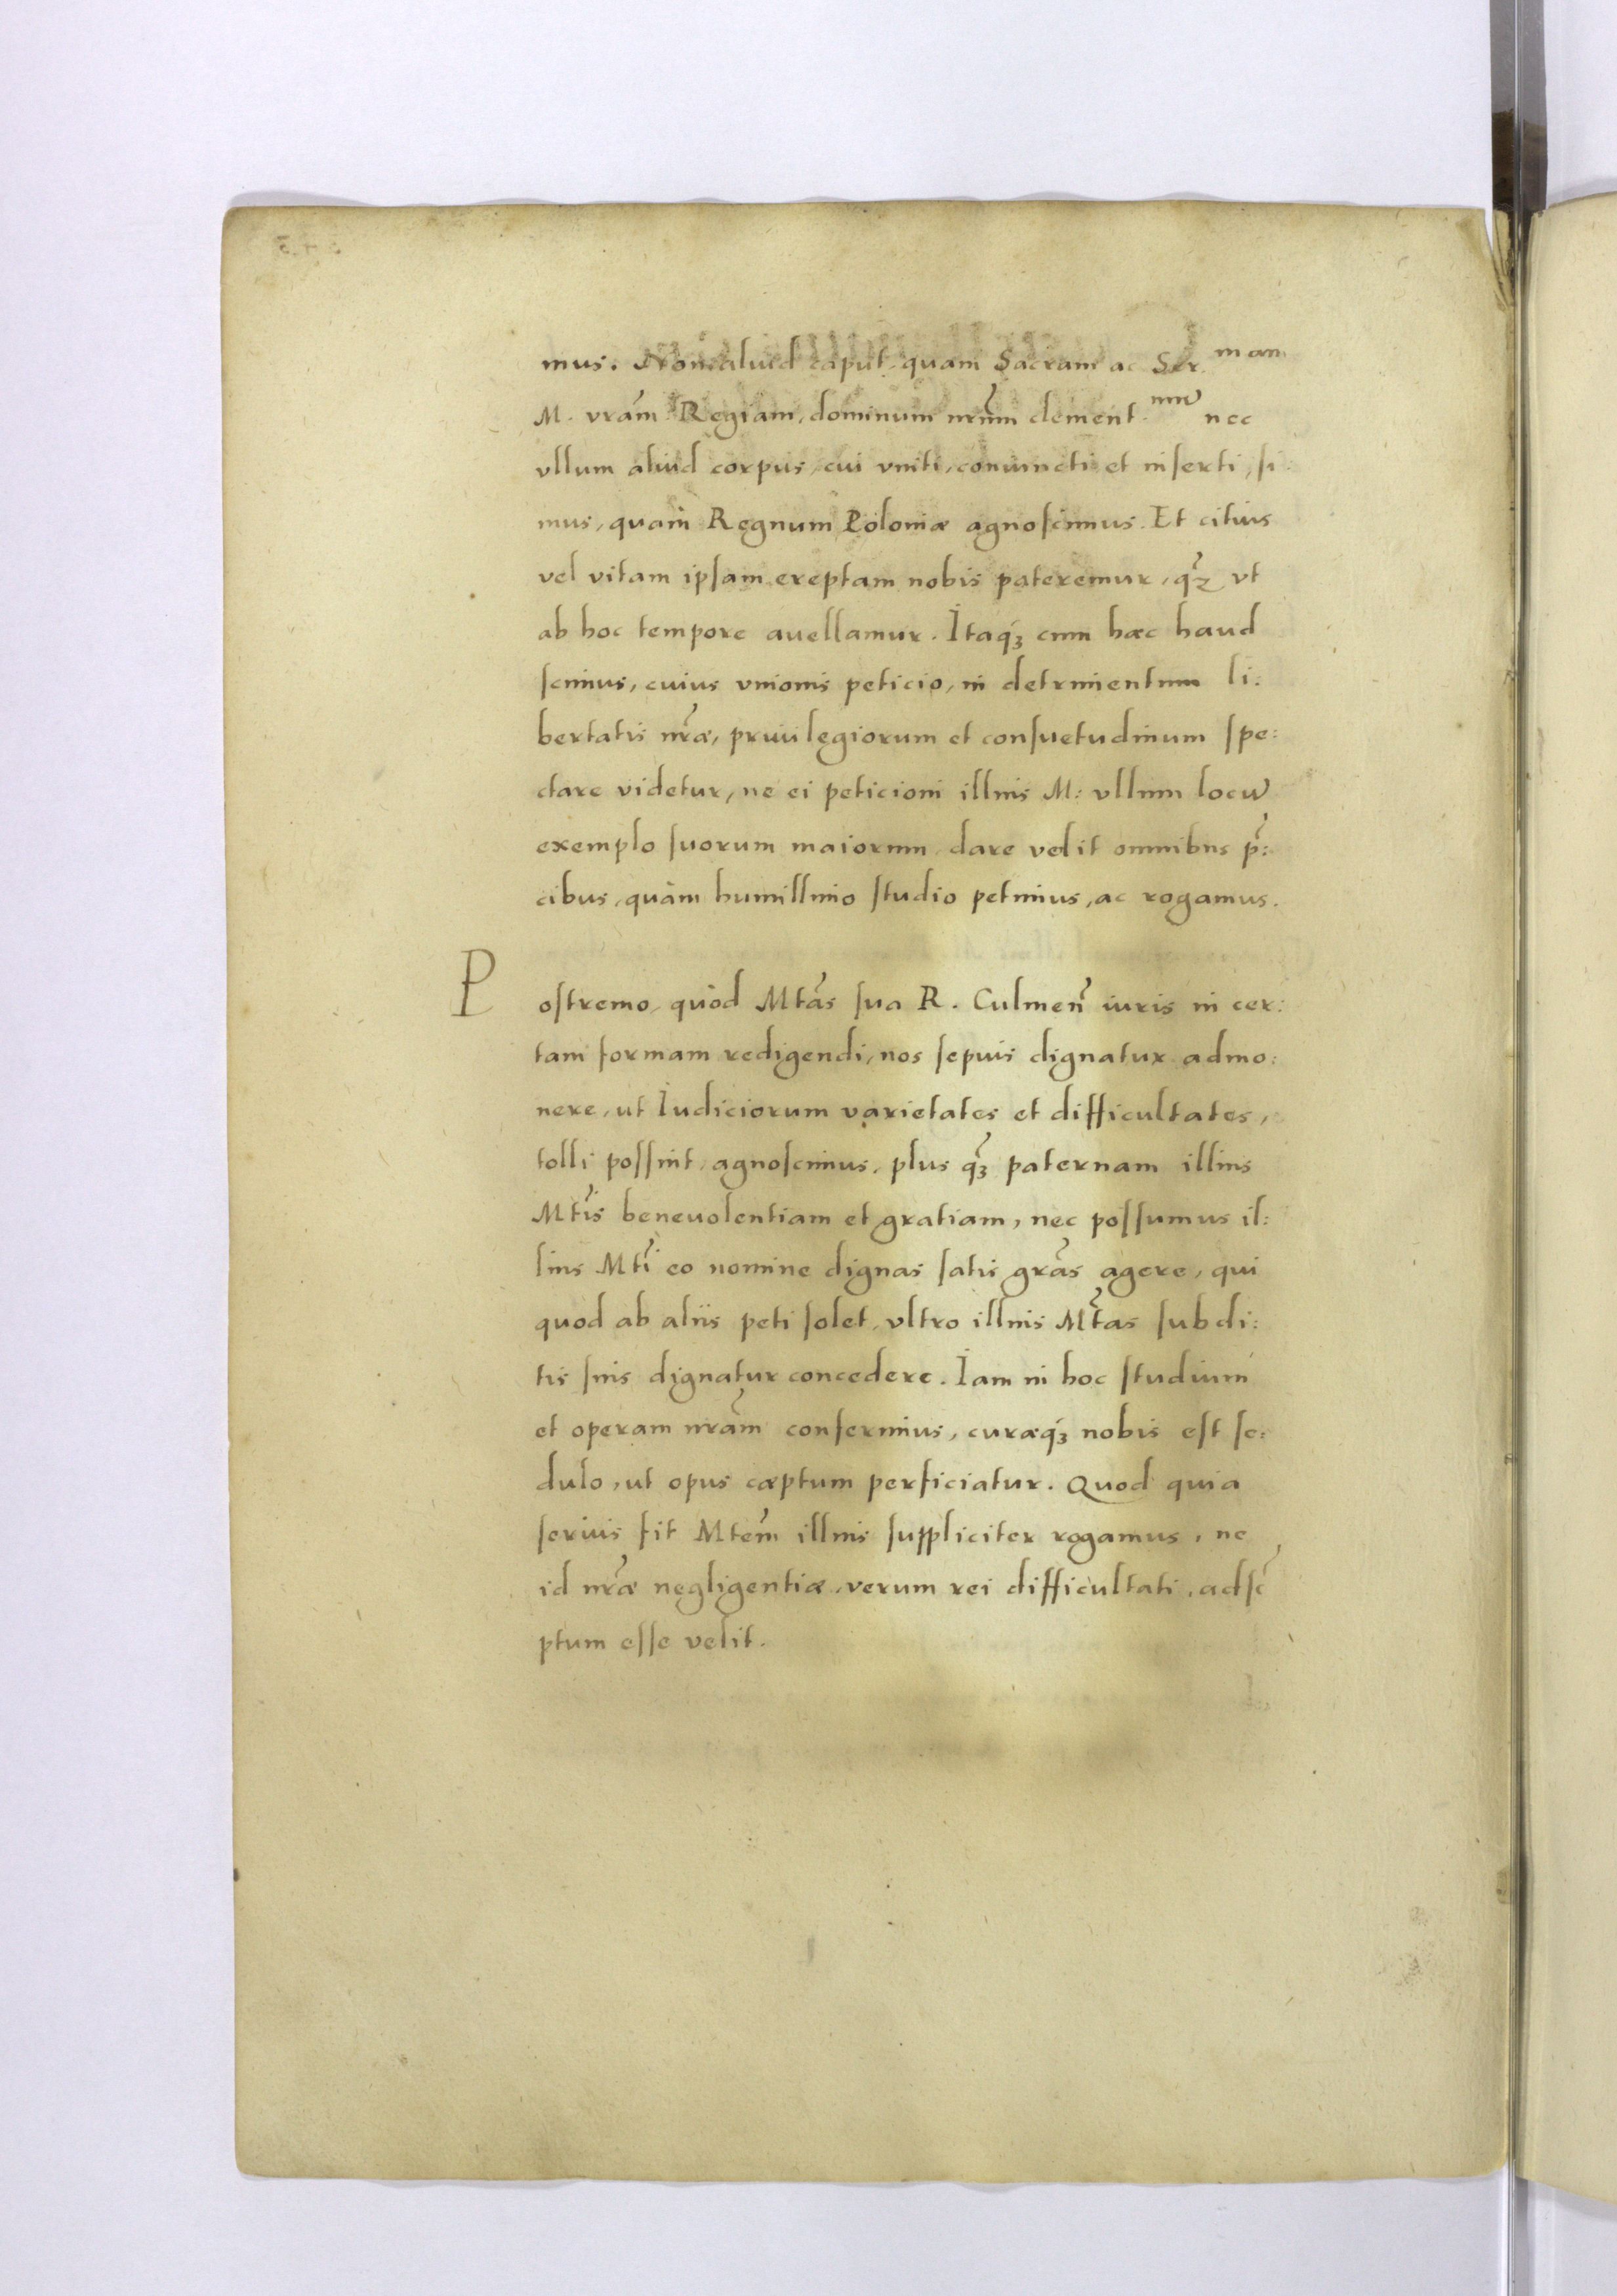 mus. Non aliud caput, quam Sacram ac Ser. mam
M. vrãm Regiam, dominum nrũm clement. mũ nec
vllum aliud corpus, cui vniti, coniuncti et inserti, si:
mus, quam Regnum Poloniæ agnoscimus. Et citius
vel vitam ipsam ereptam nobis pateremur, q̃ꝫ vt
ab hoc tempore auellamur. Itaqꝫ cum hæc haud
scimus, cuius vnionis peticio, in detrimentum li:
bertatis nr̃æ, priuilegiorum et consuetudinum spe:
ctare videtur, ne ei peticioni illius M: vllum locũ
exemplo suorum maiorum dare velit omnibus p̃:
cibus, quàm humillimo studio petimus, ac rogamus.
Postremo, quòd Mtãs sua R. Culmeñ iuris in cer:
tam formam redigendi, nos sepius dignatur admo:
nere, ut Iudiciorum varietates et difficultates,
tolli possint, agnoscimus, plus q̃ꝫ paternam illius
Mtĩs beneuolentiam et gratiam, nec possumus il:
lius Mtĩ eo nomine dignas satis grãs agere, qui
quod ab aliis peti solet, vltro illius Mt̃as subdi:
tis suis dignatur concedere. Iam in hoc studium
et operam nrãm conferimus, curæqꝫ nobis est se:
dulo, ut opus cæptum perficiatur. Quod quia
serius fit Mtem̃ illius suppliciter rogamus, ne
id nr̃æ negligentiæ, verum rei difficultati, adsc̃
ptum esse velit.